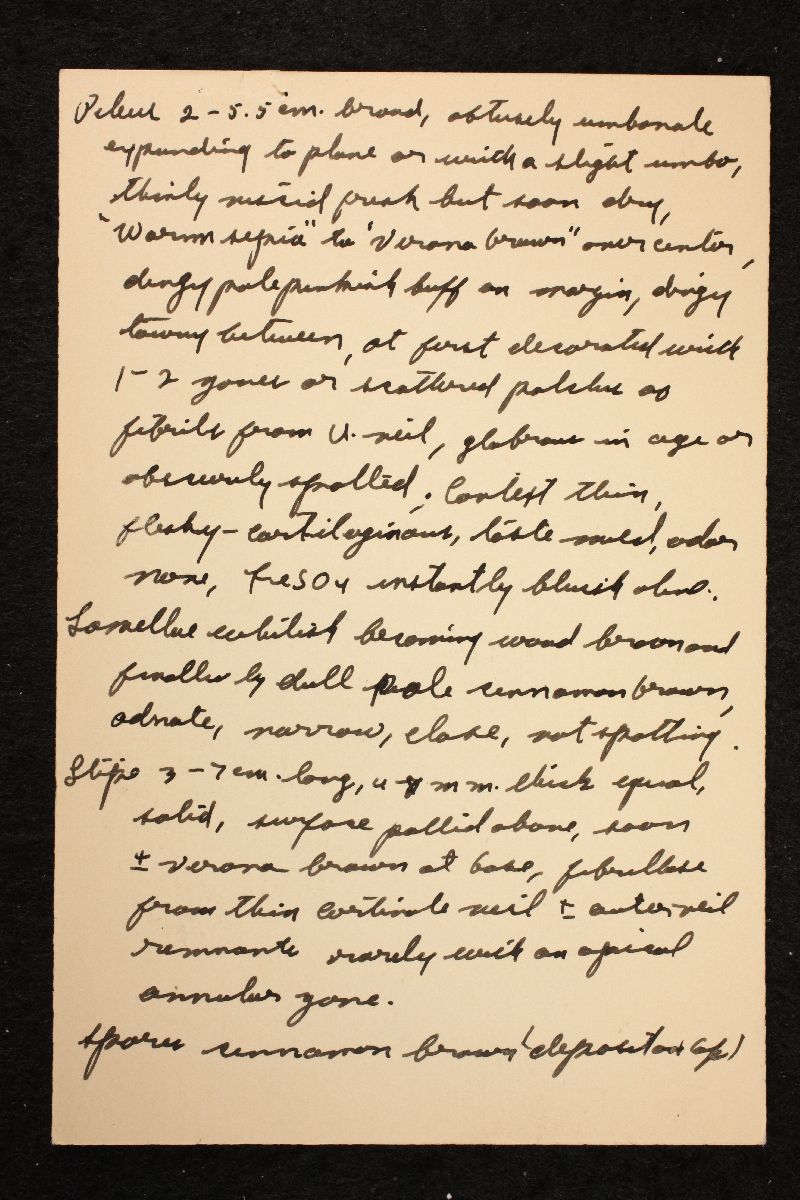 Pileus 2-5.5 cm. broad, obtusely umbonate
expanding to plane or with a slight umbo,
thinly viscid fresh but soon dry,
"Warm sepia" to "Verona brown" over center,
dingy pale pinkish buff on margin, dingy
tawny between, at first decorated with
1-2 zones or scattered patches of
fibrils from U. veil, glabrous in age or
obscurely spotted. Context thin,
fleshy-cartilaginous, taste mild, odor
none, FeSO4 instantly bluish
Lamellae whitish becoming wood brown and
finally dull pale cinnamon brown,
adnate, narrow, close, not spotting.
Stipe 3-7 cm. long, mm. thick equal,
solid, surface pallid above, soon
± verona brown at base, fibrillose
from thin cortinate veil ± outer veil
remnants rarely with an apical
annular zone.
Spores cinnamon brown (deposit on cap)